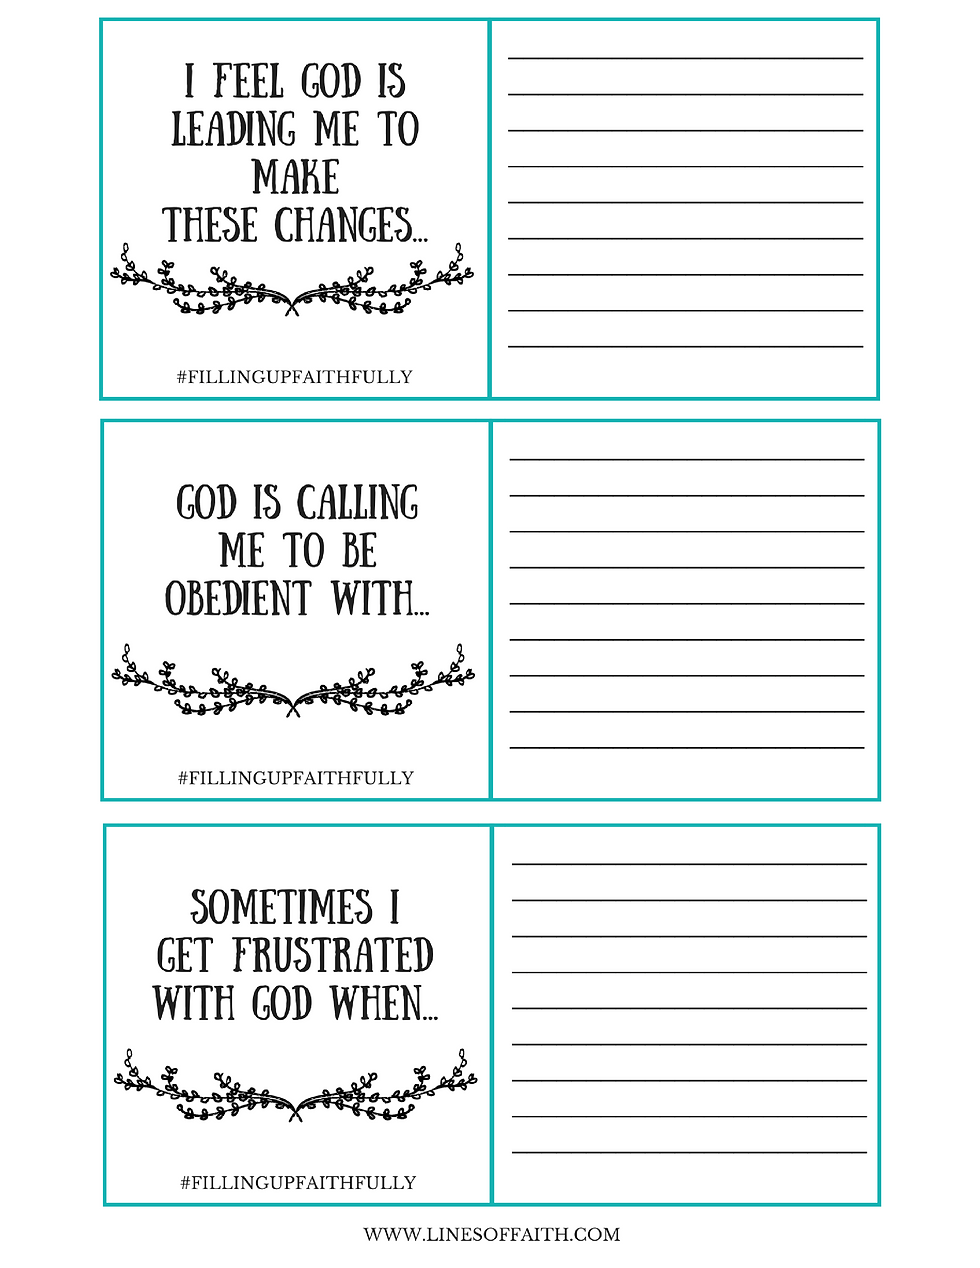 I FEEL GOD IS
LEADING ME TO
MAKE
THESE CHANGES...
#FILLINGUPFAITHFULLY
GOD IS CALLING
ME TO BE
OBEDIENT WITH...
#FILLINGUPFAITHFULLY
SOMETIMES I
GET FRUSTRATED
WITH GOD WHEN...
#FILLINGUPFAITHFULLY
WWW.LINESOFFAITH.COM